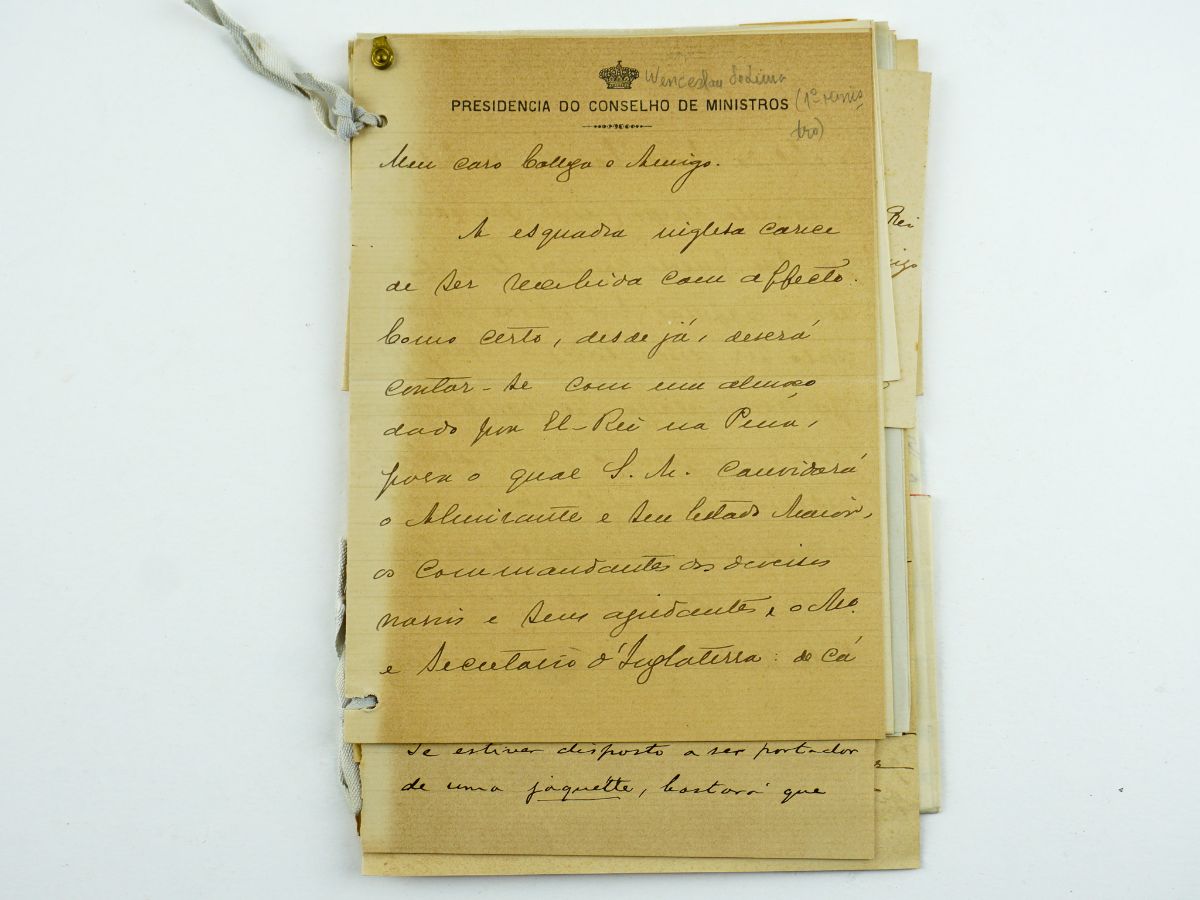 Wenceslau de Lima
PRESIDENCIA DO CONSELHO DE MINISTROS (1º minis-
tro)
Meu caro Collega e Amigo.
A esquadra inglesa carece
de ser recebida com affecto.
Como certo, desde já, deverá
contar-se com um almoço
dado por El-Rei na Pena,
para o qual S. M. convidará
o Almirante e seu Estado Maior,
os commandantes dos diversos
navios e seus ajudantes, e o Mo.
e Secretario d'Inglaterra: de cá
Rei
se estiver disposto a ser portador
de uma jaquétte, bastará que